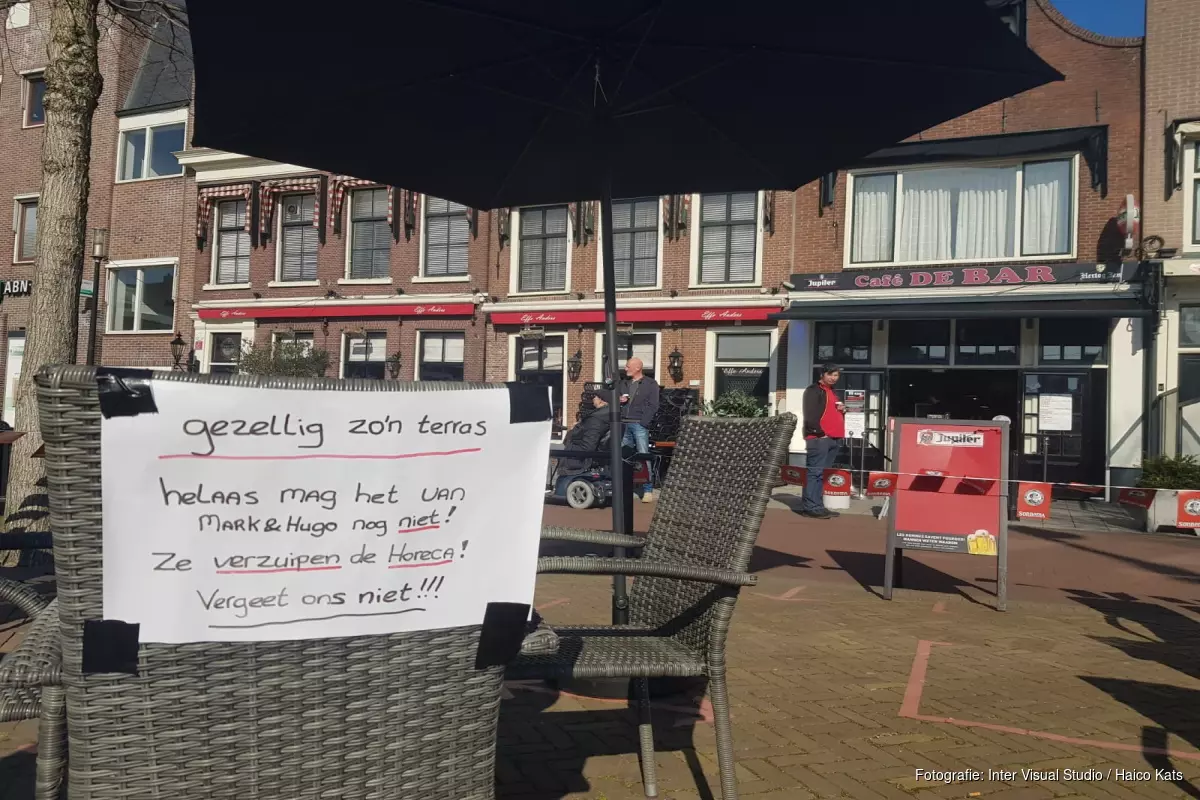 ABN
Effe Anders
Effe Anders
Effe Anders
Effe Anders
Jupiler Café DE BAR
Effe Anders
Jupiler
gezellig zo'n terras
helaas mag het van
MARK & Hugo nog niet!
Ze verzuipen de Horeca!
Vergeet ons niet!!!
Fotografie: Inter Visual Studio / Haico Kats